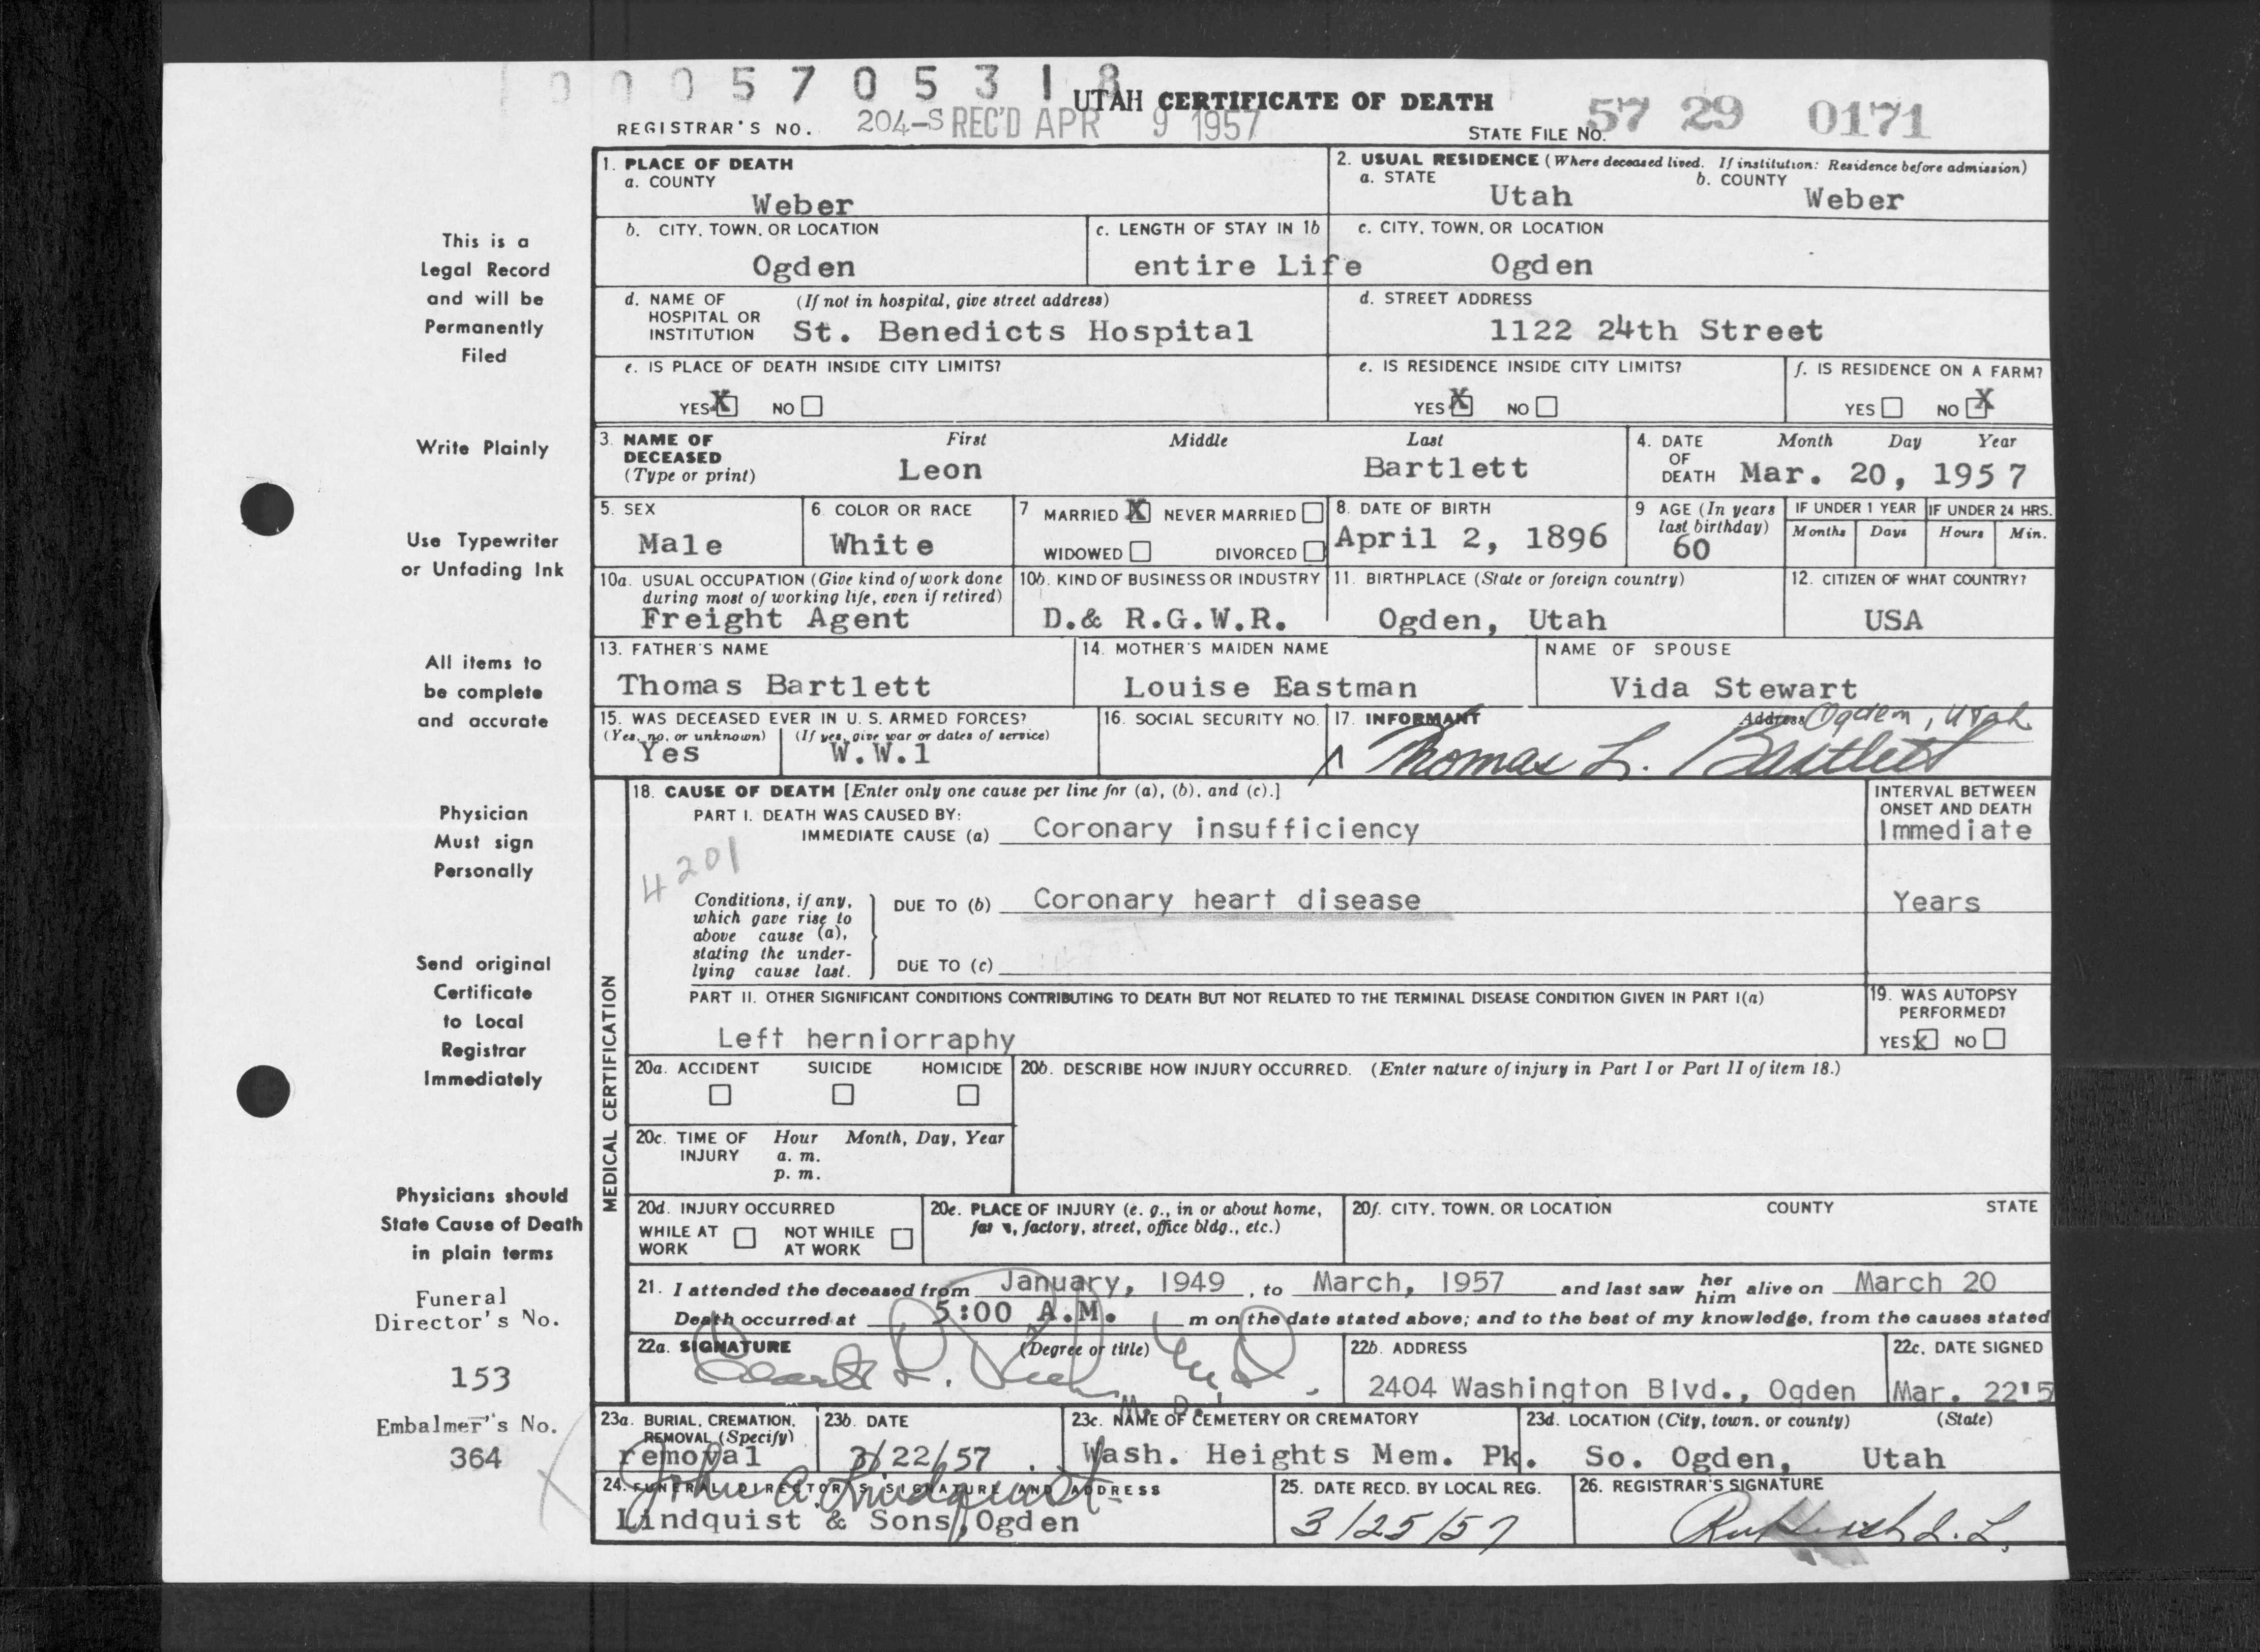 0 0 0 5 7 0 5 3 1 8
UTAH CERTIFICATE OF DEATH
REGISTRAR'S NO. 204-S REC'D APR 9 1957
STATE FILE NO. 57 29 0171
This is a
Legal Record
and will be
Permanently
Filed
Write Plainly
Use Typewriter
or Unfading Ink
All items to
be complete
and accurate
Physician
Must sign
Personally
Send original
Certificate
to Local
Registrar
Immediately
Physicians should
State Cause of Death
in plain terms
Funeral
Director's No.
153
Embalmer's No.
364
1. PLACE OF DEATH
a. COUNTY
Weber
2. USUAL RESIDENCE (Where deceased lived. If institution: Residence before admission)
a. STATE
Utah
b. COUNTY
Weber
b. CITY, TOWN, OR LOCATION
Ogden
c. LENGTH OF STAY IN 1b
entire Life
c. CITY, TOWN, OR LOCATION
Ogden
d. NAME OF (If not in hospital, give street address)
HOSPITAL OR
INSTITUTION St. Benedicts Hospital
d. STREET ADDRESS
1122 24th Street
e. IS PLACE OF DEATH INSIDE CITY LIMITS?
YES X NO
e. IS RESIDENCE INSIDE CITY LIMITS?
YES X NO
f. IS RESIDENCE ON A FARM?
YES NO X
3. NAME OF First Middle Last
DECEASED
(Type or print) Leon Bartlett
4. DATE Month Day Year
OF
DEATH Mar. 20, 1957
5. SEX
Male
6. COLOR OR RACE
White
7 MARRIED X NEVER MARRIED
WIDOWED DIVORCED
8. DATE OF BIRTH
April 2, 1896
9 AGE (In years
last birthday)
60
IF UNDER 1 YEAR
Months Days
IF UNDER 24 HRS.
Hours Min.
10a. USUAL OCCUPATION (Give kind of work done
during most of working life, even if retired)
Freight Agent
10b. KIND OF BUSINESS OR INDUSTRY
D.& R.G.W.R.
11. BIRTHPLACE (State or foreign country)
Ogden, Utah
12. CITIZEN OF WHAT COUNTRY?
USA
13. FATHER'S NAME
Thomas Bartlett
14. MOTHER'S MAIDEN NAME
Louise Eastman
NAME OF SPOUSE
Vida Stewart
15. WAS DECEASED EVER IN U. S. ARMED FORCES?
(Yes, no, or unknown) (If yes, give war or dates of service)
Yes W.W.1
16. SOCIAL SECURITY NO.
17. INFORMANT Address Ogden, Utah
Thomas L. Bartlett
MEDICAL CERTIFICATION
18. CAUSE OF DEATH [Enter only one cause per line for (a), (b), and (c).]
PART I. DEATH WAS CAUSED BY:
IMMEDIATE CAUSE (a) Coronary insufficiency
INTERVAL BETWEEN
ONSET AND DEATH
Immediate
4201
Conditions, if any,
which gave rise to
above cause (a),
stating the under-
lying cause last.
DUE TO (b) Coronary heart disease
Years
DUE TO (c)
PART II. OTHER SIGNIFICANT CONDITIONS CONTRIBUTING TO DEATH BUT NOT RELATED TO THE TERMINAL DISEASE CONDITION GIVEN IN PART I(a)
Left herniorraphy
19. WAS AUTOPSY
PERFORMED?
YES X NO
20a. ACCIDENT SUICIDE HOMICIDE
20b. DESCRIBE HOW INJURY OCCURRED. (Enter nature of injury in Part I or Part II of item 18.)
20c. TIME OF Hour Month, Day, Year
INJURY a. m.
p. m.
20d. INJURY OCCURRED
WHILE AT NOT WHILE
WORK AT WORK
20e. PLACE OF INJURY (e. g., in or about home,
factory, street, office bldg., etc.)
20f. CITY, TOWN, OR LOCATION COUNTY STATE
21. I attended the deceased from January, 1949, to March, 1957 and last saw her him alive on March 20
Death occurred at 5:00 A.M. m on the date stated above; and to the best of my knowledge, from the causes stated
22a. SIGNATURE (Degree or title)
M. D.
22b. ADDRESS
2404 Washington Blvd., Ogden
22c. DATE SIGNED
Mar. 22'5
23a. BURIAL, CREMATION,
REMOVAL (Specify)
removal
23b. DATE
3/22/57
23c. NAME OF CEMETERY OR CREMATORY
Wash. Heights Mem. Pk.
23d. LOCATION (City, town, or county) (State)
So. Ogden, Utah
24. FUNERAL DIRECTOR'S SIGNATURE AND ADDRESS
John A. Lindquist
Lindquist & Sons, Ogden
25. DATE RECD. BY LOCAL REG.
3/25/57
26. REGISTRAR'S SIGNATURE